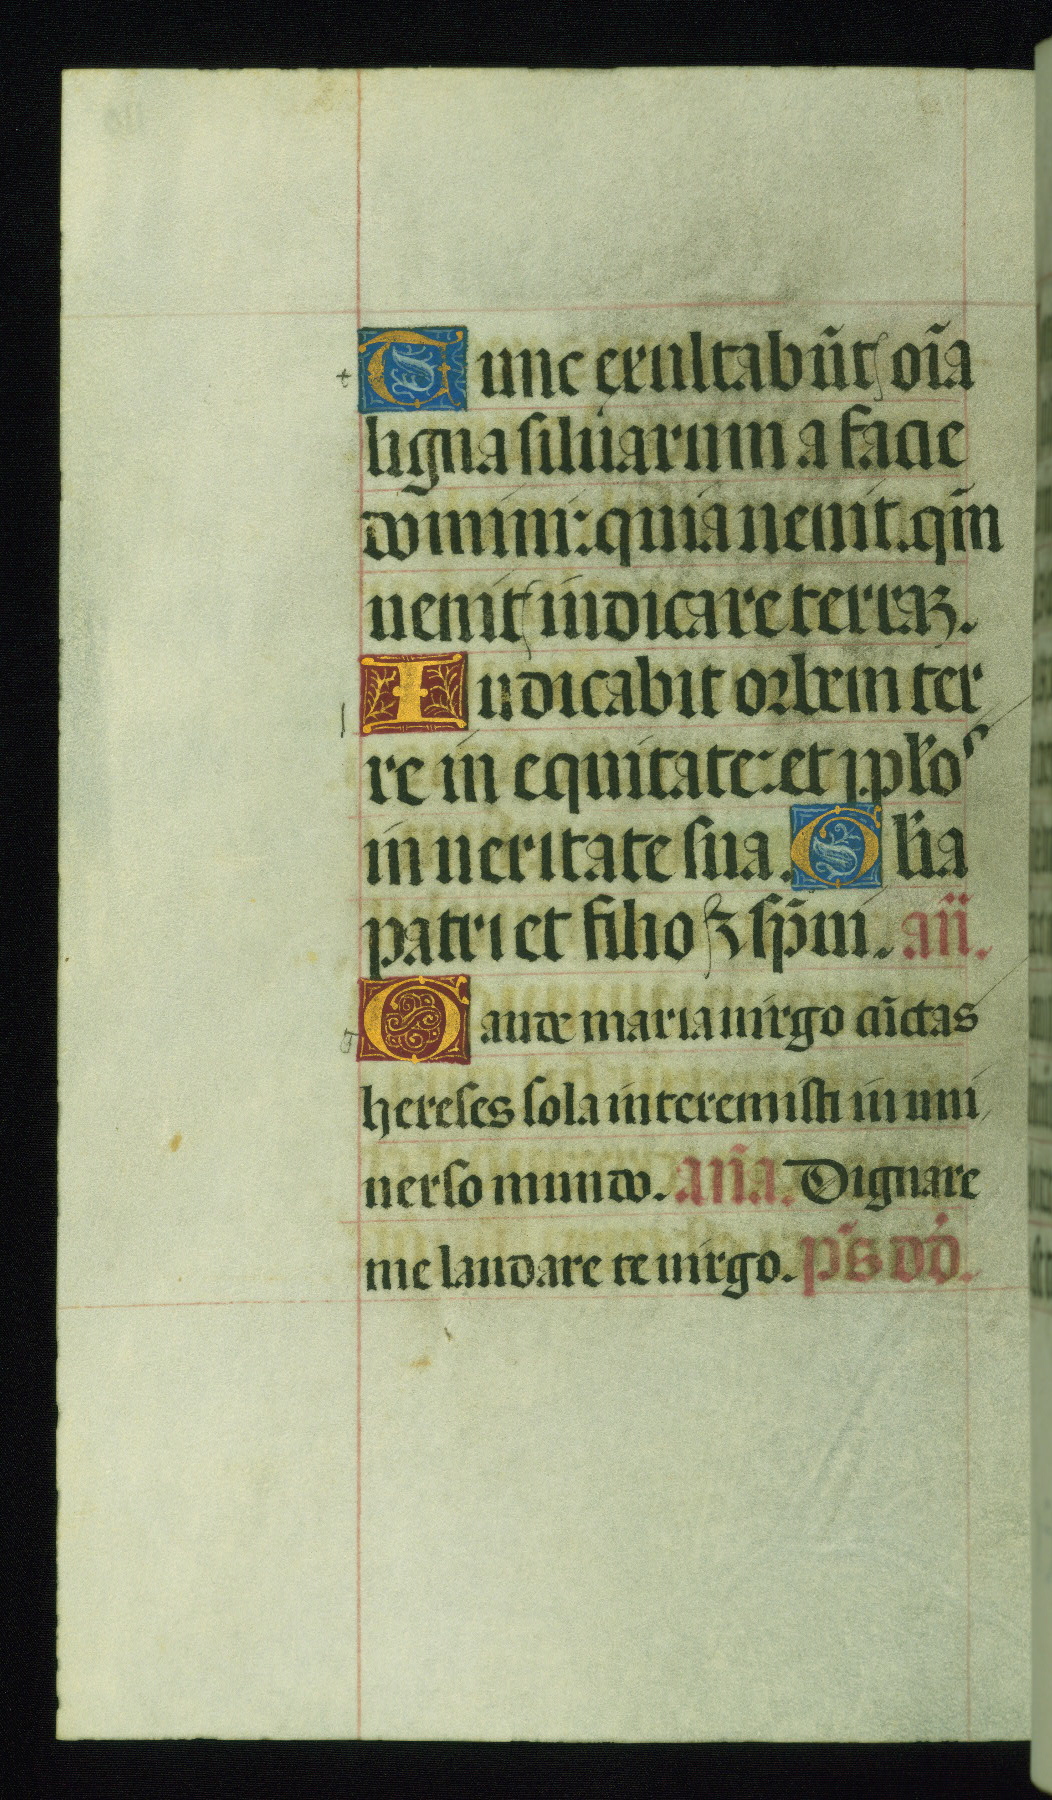 Tunc exultabūt oīa
ligna siluarum a facie
domini: quia uenit. qm̄
uenit iudicare terraꝫ.
Iudicabit orbem ter
re in equitate: et ppl̄os
in ueritate sua. Gl̄ia
patri et filio ꝫ sp̄ui. añ.
Gaude maria uirgo cūctas
hereses sola interemisti in uni
uerso mundo. añā. Dignare
me laudare te uirgo. ps̄ dd̄.